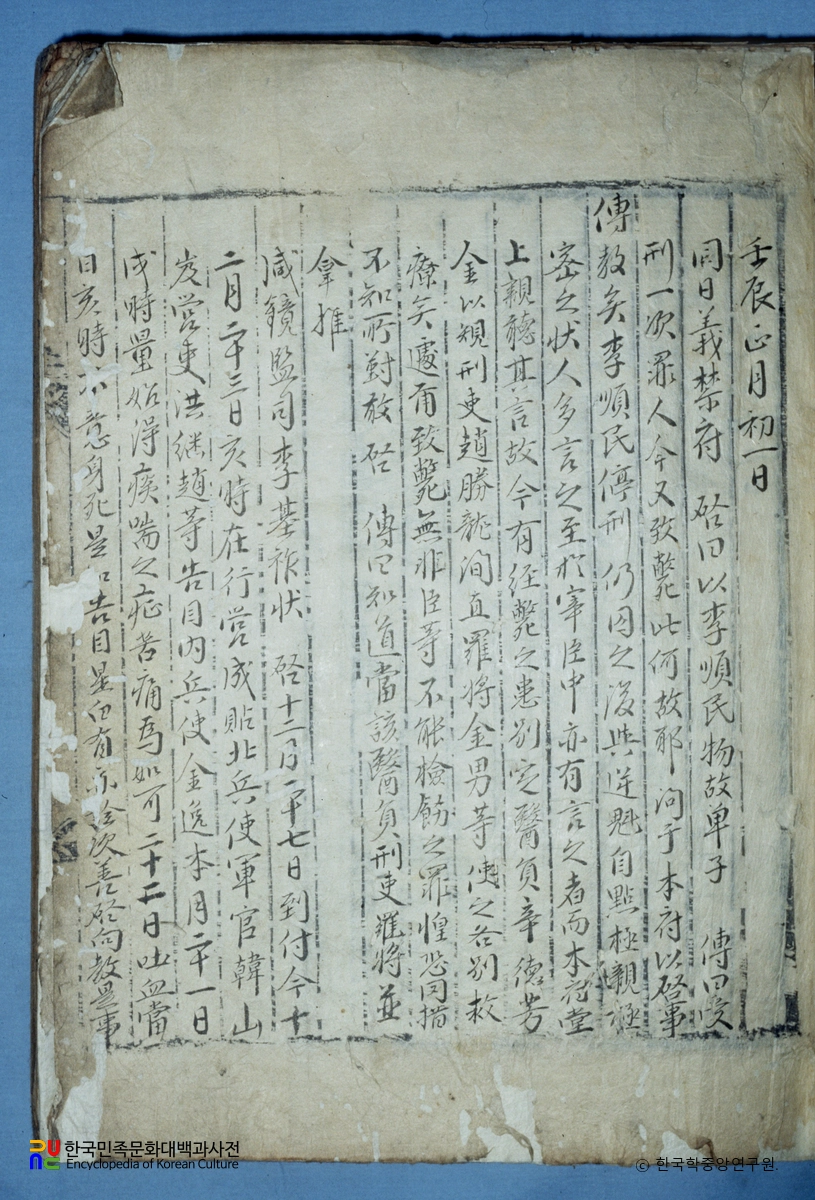 壬辰正月初一日
同日義禁府 啓曰以李順民物故单子 傳曰受
刑一次罪人今又致斃此何故耶問于本府以啓事
傳教矣李順民停刑仍囚之後與逆魁自點極親
密之狀人多言之至於宰臣中亦有言之者而本府堂
上親聽其言故今有徑斃之患別定醫負辛德芳
金以規刑吏趙勝龍洵直羅將金男等使之各別救
療矣遽爾致斃無非臣等不能檢飭之罪惶恐罔措
不知所對敢 啓 傳曰知道當該醫負刑吏羅將並
拿推
咸鏡監司李基祚狀 啓十二月二十七日到付今十
二月二十三日亥時在行營成貼北兵使軍官韓山
岌營吏洪继趙等告目内兵使金逸本月二十一日
戌時量始得痰喘之症苦痛爲如可二十二日吐血當
日亥時不意身死是如告目是白有亦 次善啓向教是事
한국민족문화대백과사전
Encyclopedia of Korean Culture
© 한국학중앙연구원.